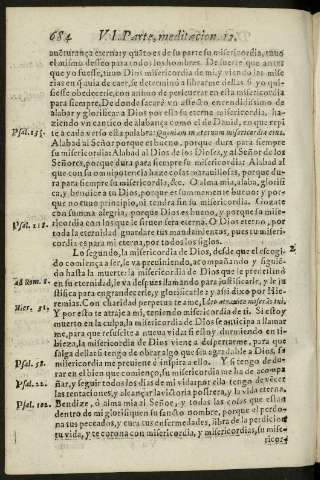 684 VI. Parte, meditacion. 12.
auéturança eterna: y quáto es de su parte su misericordia, tuuo
el mismo desseo para todos los hombres. De suerte que antes
que yo fuesse, tuuo Dios misericordia de mi, y viendo las mise
rias en q̃ auia de caer, se determinò a librarme dellas si yo qui-
siesse obedecerle, con animo de perseuerar en esta misericordia
para siempre. De donde sacarè vn afecto encendidissimo de
alabar y glorificar a Dios por esta su eterna misericordia, ha-
ziendo vn cantico de alabança como el de Dauid, en que repi
Psal. 135. te a cada verso esta palabra: Quoniam in æternum misericordia eius.
Alabad al Señor porque es bueno, porque dura para siempre
su misericordia: Alabad al Dios de los Dioses, y al Señor de los
Señores, porque dura para siempre su misericordia: Alabad al
que con su omnipotencia haze cosas marauillosas, porque du-
ra para siempre su misericordia, &c. O alma mia, alaba, glorifi
ca, y bendice a tu Dios, porque es summamente bueno: y por-
que no tuuo principio, ni tendra fin su misericordia. Gozate
con summa alegria, porque Dios es bueno, y porque la mise-
ricordia con los que le siruen sera eterna. O Dios eterno, por
Psal. 118. toda la eternidad guardare tus mandamientos, pues tu miseri-
cordia es para mi eterna, por todos los siglos.
Lo segundo, la misericordia de Dios, desde que el escogi- 2.
do comiença a ser, le va preuiniendo, acompañando y siguié-
do hasta la muerte: la misericordia de Dios que le predestinò
ad Rom. 8. en su eternidad, le va despues llamando para justificarle, y le ju
stifica para engrandecerle, y glorificarle: y assi dixo por Hie-
Hier. 31. remias. Con charidad perpetua te amè, Ideo attraxi te miserãs tui.
Y por esto te atraje a mi, teniendo misericordia de ti. Si estoy
muerto en la culpa, la misericordia de Dios se anticipa a llamar
me, para que resuscite a nueua vida: si estoy durmiendo en ti-
bieza, la misericordia de Dios viene a despertarme, para que
salga della: si tengo de obrar algo que sea agradable a Dios, su
Psal. 58. misericordia me preuiene è inspira a ello. Y si tengo de du-
rar en el bien que comienço, su misericordia me ha de acompa
Psal. 22. ñar, y seguir todos los dias de mi vida: por ella tengo de vécer
las tentaciones, y alcançar la victoria postrera, y la vida eterna.
Psal. 102. Bendize, ò alma mia al Señor, y todas las cosas que estan
dentro de mi glorifiquen su sancto nombre, porque el perdo-
na tus peccados, y cura tus enfermedades, libra de la perdicion
tu vida, y te corona con misericordia, y misericordias, su mise-
ricor-